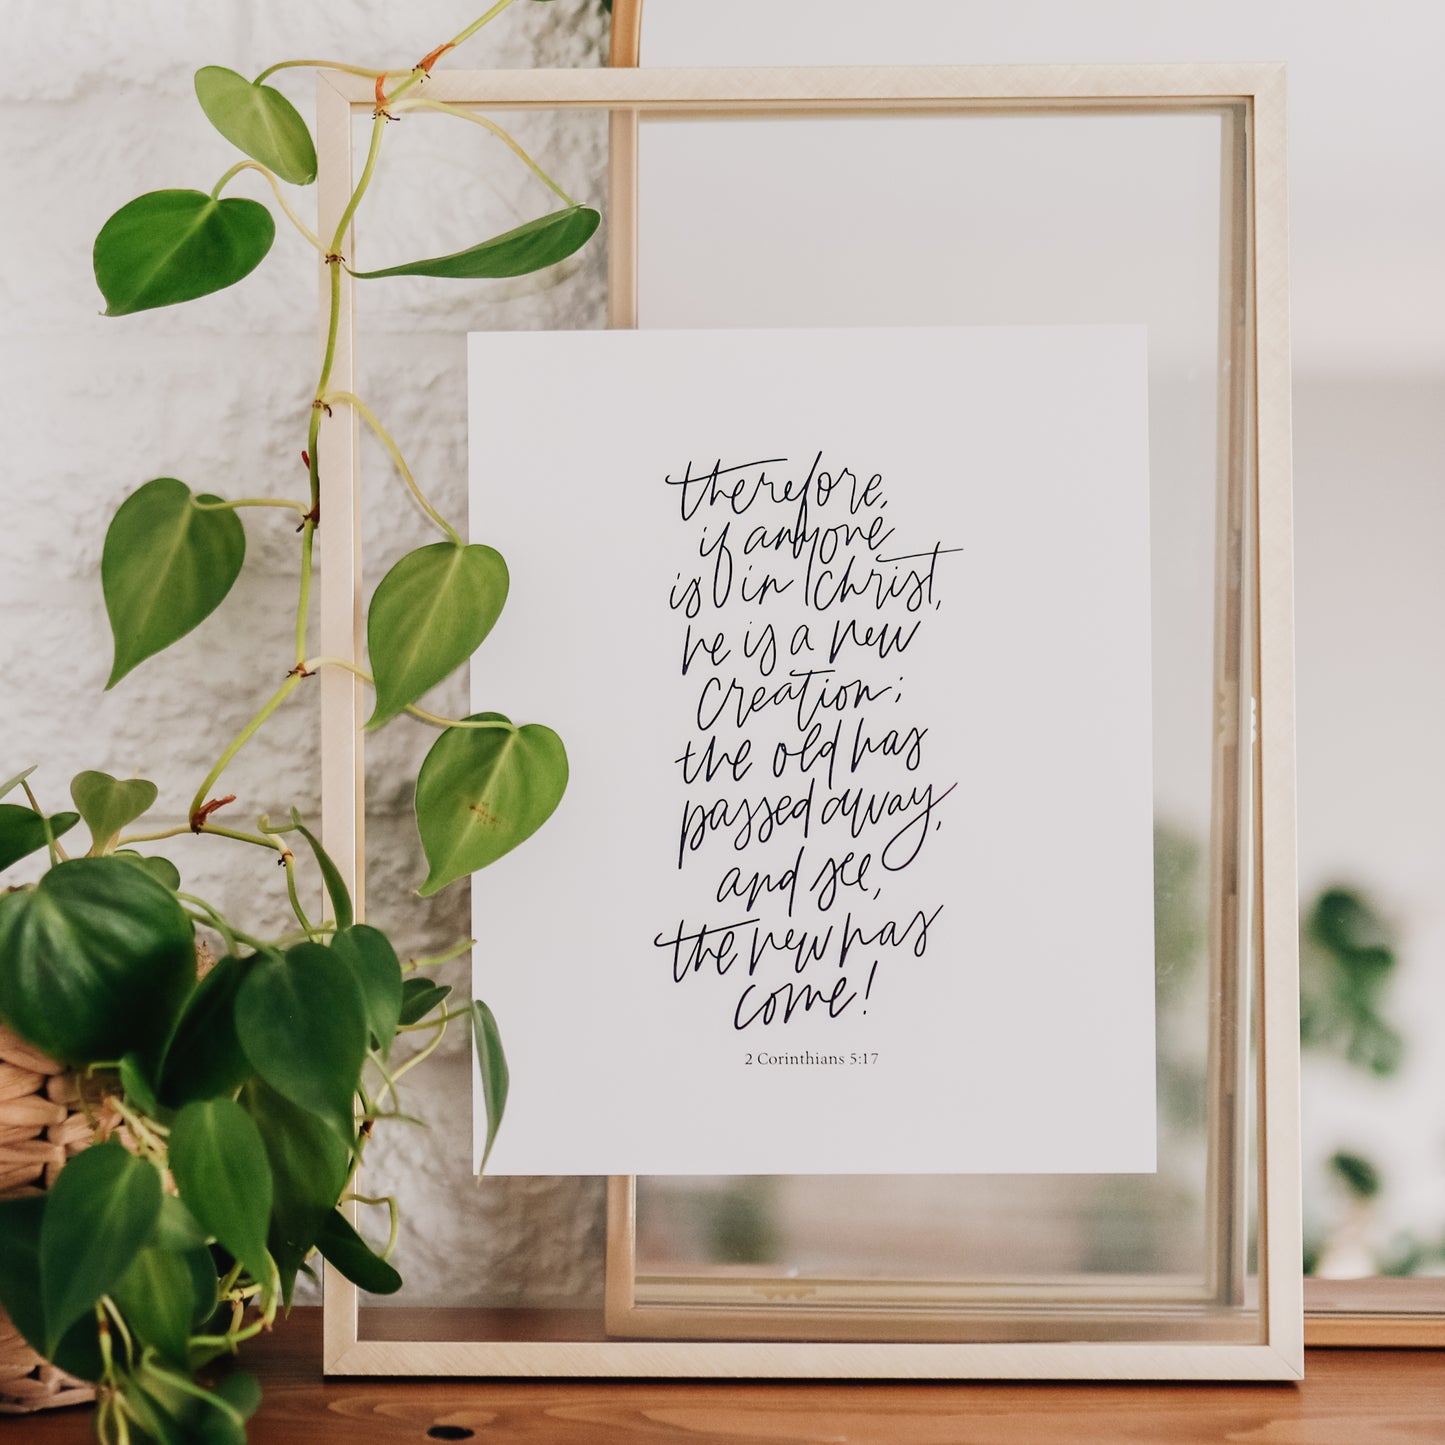 therefore,
if anyone
is in Christ,
he is a new
creation;
the old has
passed away,
and see,
the new has
come!
2 Corinthians 5:17